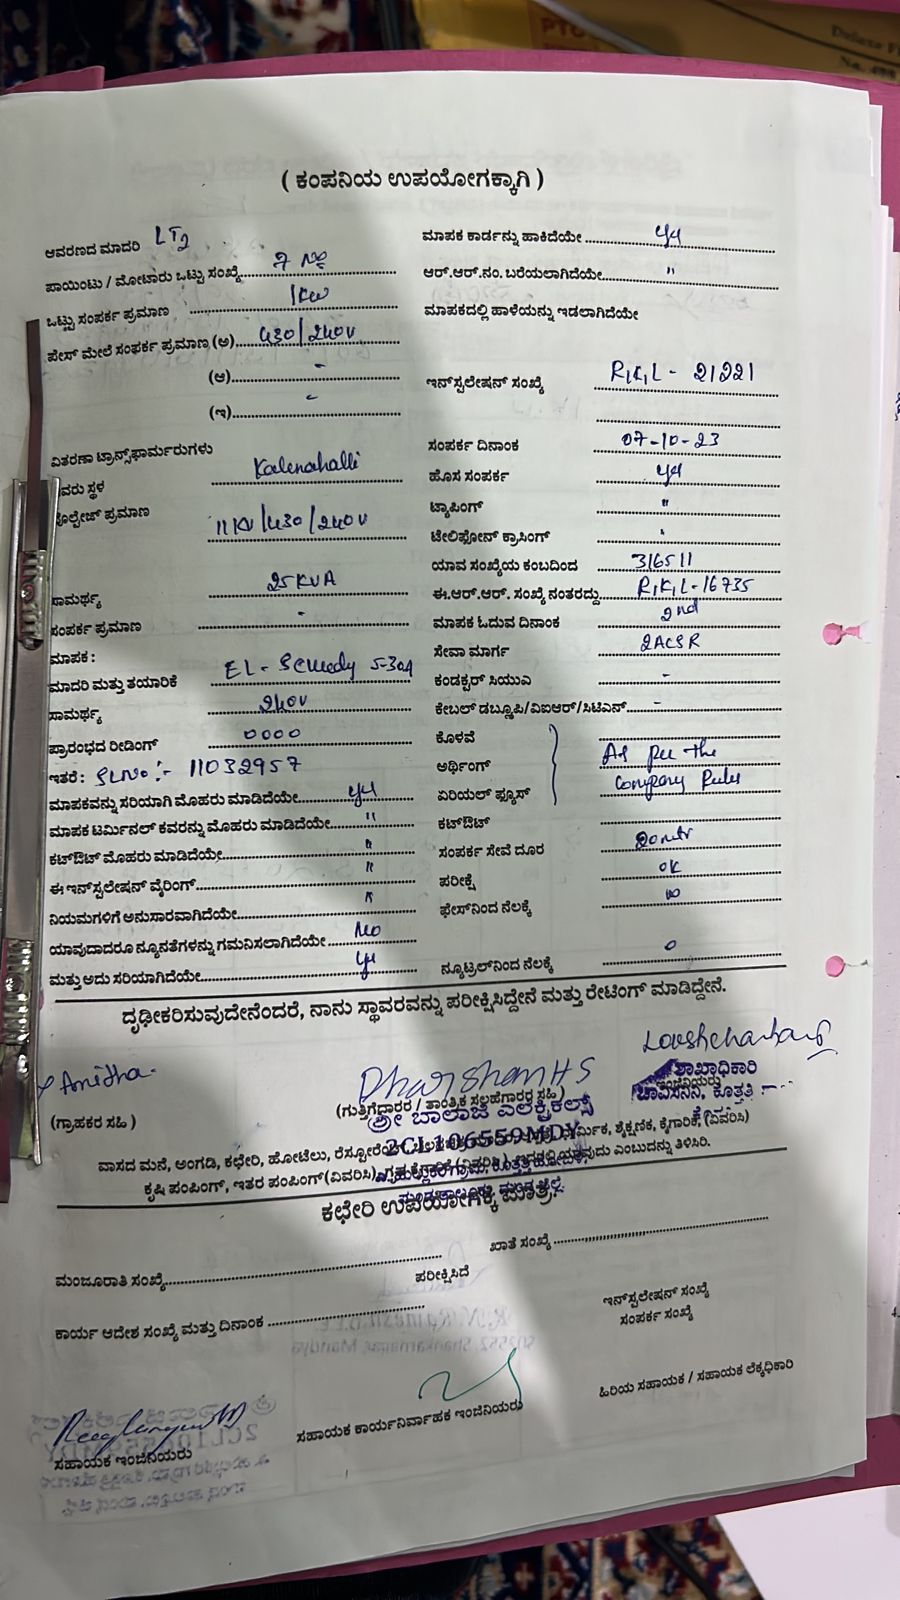 ( ಕಂಪನಿಯ ಉಪಯೋಗಕ್ಕಾಗಿ )
ಆವರಣದ ಮಾದರಿ LT2
ಪಾಯಿಂಟು / ಮೋಟಾರು ಒಟ್ಟು ಸಂಖ್ಯೆ 7 No
ಒಟ್ಟು ಸಂಪರ್ಕ ಪ್ರಮಾಣ 1KW
ಫೇಸ್ ಮೇಲೆ ಸಂಪರ್ಕ ಪ್ರಮಾಣ (ಅ) 430/240V
(ಆ) -
(ಇ) -
ವಿತರಣಾ ಟ್ರಾನ್ಸ್‌ಫಾರ್ಮರುಗಳು
ಸ್ಥಳ Kalenahalli
ಪ್ರಮಾಣ 11KV/430/240V
ಸಾಮರ್ಥ್ಯ 25KVA
ಸಂಪರ್ಕ ಪ್ರಮಾಣ -
ಮಾಪಕ :
ಮಾದರಿ ಮತ್ತು ತಯಾರಿಕೆ EL - 5-30A
ಸಾಮರ್ಥ್ಯ 240V
ಪ್ರಾರಂಭದ ರೀಡಿಂಗ್ 0000
ಇತರೆ : SLNO :- 11032957
ಮಾಪಕವನ್ನು ಸರಿಯಾಗಿ ಮೊಹರು ಮಾಡಿದೆಯೇ yes
ಮಾಪಕ ಟರ್ಮಿನಲ್ ಕವರನ್ನು ಮೊಹರು ಮಾಡಿದೆಯೇ "
ಕಟ್‌ಔಟ್ ಮೊಹರು ಮಾಡಿದೆಯೇ "
ಈ ಇನ್‌ಸ್ಟಲೇಷನ್ ವೈರಿಂಗ್ "
ನಿಯಮಗಳಿಗೆ ಅನುಸಾರವಾಗಿದೆಯೇ "
ಯಾವುದಾದರೂ ನ್ಯೂನತೆಗಳನ್ನು ಗಮನಿಸಲಾಗಿದೆಯೇ No
ಮತ್ತು ಅದು ಸರಿಯಾಗಿದೆಯೇ yes
ಮಾಪಕ ಕಾರ್ಡನ್ನು ಹಾಕಿದೆಯೇ yes
ಆರ್.ಆರ್.ನಂ. ಬರೆಯಲಾಗಿದೆಯೇ "
ಮಾಪಕದಲ್ಲಿ ಹಾಳೆಯನ್ನು ಇಡಲಾಗಿದೆಯೇ
ಇನ್‌ಸ್ಟಲೇಷನ್ ಸಂಖ್ಯೆ R,K,L - 21221
ಸಂಪರ್ಕ ದಿನಾಂಕ 07-10-23
ಹೊಸ ಸಂಪರ್ಕ yes
ಟ್ಯಾಪಿಂಗ್ "
ಟೆಲಿಫೋನ್ ಕ್ರಾಸಿಂಗ್
ಯಾವ ಸಂಖ್ಯೆಯ ಕಂಬದಿಂದ 316511
ಈ.ಆರ್.ಆರ್. ಸಂಖ್ಯೆ ನಂತರದ್ದು R,K,L-16735
ಮಾಪಕ ಓದುವ ದಿನಾಂಕ 2nd
ಸೇವಾ ಮಾರ್ಗ 2ACSR
ಕಂಡಕ್ಟರ್ ಸಿಯುಎ -
ಕೇಬಲ್ ಡಬ್ಲ್ಯೂಪಿ/ವಿಐಆರ್/ಸಿಟಿಎಸ್ -
ಕೊಳವೆ
ಅರ್ಥಿಂಗ್ As per the
ಏರಿಯಲ್ ಫ್ಯೂಸ್ Company Rules
ಕಟ್‌ಔಟ್
ಸಂಪರ್ಕ ಸೇವೆ ದೂರ 20mtr
ಪರೀಕ್ಷೆ OK
ಫೇಸ್‌ನಿಂದ ನೆಲಕ್ಕೆ
ನ್ಯೂಟ್ರಲ್‌ನಿಂದ ನೆಲಕ್ಕೆ 0
ದೃಢೀಕರಿಸುವುದೇನೆಂದರೆ, ನಾನು ಸ್ಥಾವರವನ್ನು ಪರೀಕ್ಷಿಸಿದ್ದೇನೆ ಮತ್ತು ರೇಟಿಂಗ್ ಮಾಡಿದ್ದೇನೆ.
Anitha
DharshanHS
(ಗ್ರಾಹಕರ ಸಹಿ)
(ಗುತ್ತಿಗೆದಾರರ / ತಾಂತ್ರಿಕ ಸಲಹೆಗಾರರ ಸಹಿ)
ಶಾಖಾಧಿಕಾರಿ
ಚಾವಿಸನಿನಿ, ಕೊತ್ತತ್ತಿ
ಶ್ರೀ ಬಾಲಾಜಿ ಎಲೆಕ್ಟ್ರಿಕಲ್ಸ್
2CL106559MDY
ವಾಸದ ಮನೆ, ಅಂಗಡಿ, ಕಛೇರಿ, ಹೋಟೆಲು, ಶೈಕ್ಷಣಿಕ, ಕೈಗಾರಿಕೆ, (ವಿವರಿಸಿ)
ಕೃಷಿ ಪಂಪಿಂಗ್, ಇತರ ಪಂಪಿಂಗ್ (ವಿವರಿಸಿ), ಎಂಬುದನ್ನು ತಿಳಿಸಿರಿ.
ಕಛೇರಿ ಉಪಯೋಗಕ್ಕೆ ಮಾತ್ರ
ಮಂಜೂರಾತಿ ಸಂಖ್ಯೆ
ಖಾತೆ ಸಂಖ್ಯೆ
ಪರೀಕ್ಷಿಸಿದೆ
ಕಾರ್ಯ ಆದೇಶ ಸಂಖ್ಯೆ ಮತ್ತು ದಿನಾಂಕ
ಇನ್‌ಸ್ಟಲೇಷನ್ ಸಂಖ್ಯೆ
ಸಂಪರ್ಕ ಸಂಖ್ಯೆ
ಸಹಾಯಕ ಇಂಜಿನಿಯರು
ಸಹಾಯಕ ಕಾರ್ಯನಿರ್ವಾಹಕ ಇಂಜಿನಿಯರು
ಹಿರಿಯ ಸಹಾಯಕ / ಸಹಾಯಕ ಲೆಕ್ಕಧಿಕಾರಿ